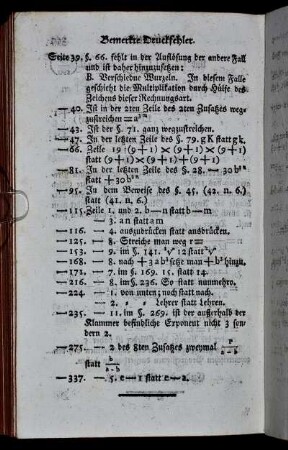 Bemerkte Druckfehler.
Seite 39. §. 66. fehlt in der Auflösung der andere Fall
und ist daher hinzuzusetzen:
B. Verschiedne Wurzeln. In diesem Falle
geschieht die Multiplikation durch Hülfe des
Zeichens dieser Rechnungsart.
— 40. Ist in der 2ten Zeile des 2ten Zusatzes weg-
zustreichen
— 43. Ist der §. 71. ganz wegzustreichen.
— 47. In der letzten Zeile des §. 79. gK statt gk.
— 66. Zeile 19 (9+1) × (9+1) × (9+1)
statt (9+1) × (9+1) + (9+1)
— 81. In der letzten Zeile des §. 28. — 30b
statt + 30b
— 95. In dem Beweise des §. 45. (42. n. 6.)
statt (41. n. 6.)
— 115. Zeile 1. und 2. b—n statt b—m
— 3. an statt am
— 116. — 4. auszudrücken statt ausdrücken.
— 125. — 8. Streiche man weg r=
— 153. — 9. im §. 141. 12 statt
— 168. — 8. nach + 3 a b² setze man + b³ hinzu.
— 171. — 7. im §. 169. 15. statt 14.
— 216. — 8. im §. 236. So statt nunmehro.
— 224. — 1. von unten; noch statt nach.
— 2. Lehrer statt Lehren.
— 235. — 11. im §. 269. ist der außerhalb der
Klammer befindliche Exponent nicht 3 son-
dern 2.
— 275. — 2 des 8ten Zusatzes zweymal P/a—b
statt b/a—b
— 337. — 5. e—1 statt e—2.